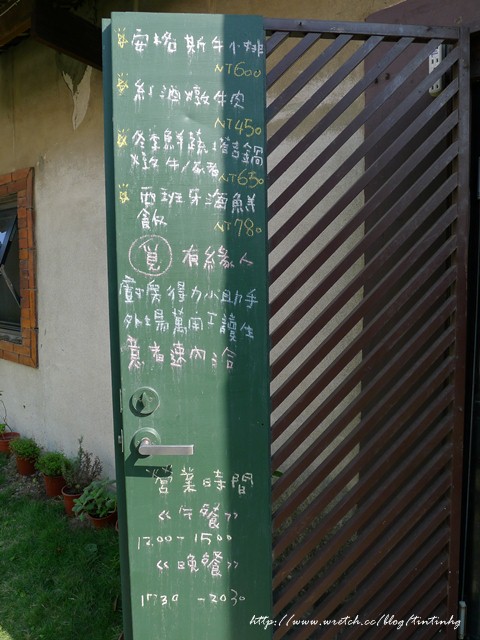 安格斯牛小排
NT600
紅酒燉牛肉
NT450
冬季鮮蔬塔吉鍋
燉牛/
NT650
西班牙海鮮
飯
NT780
覓 有緣人
廚房得力小助手
外場萬用工讀生
意者速內洽
營業時間
《午餐》
12:00 - 15:00
《晚餐》
17:30 - 20:30
http://www.wretch.cc/blog/tintinhg